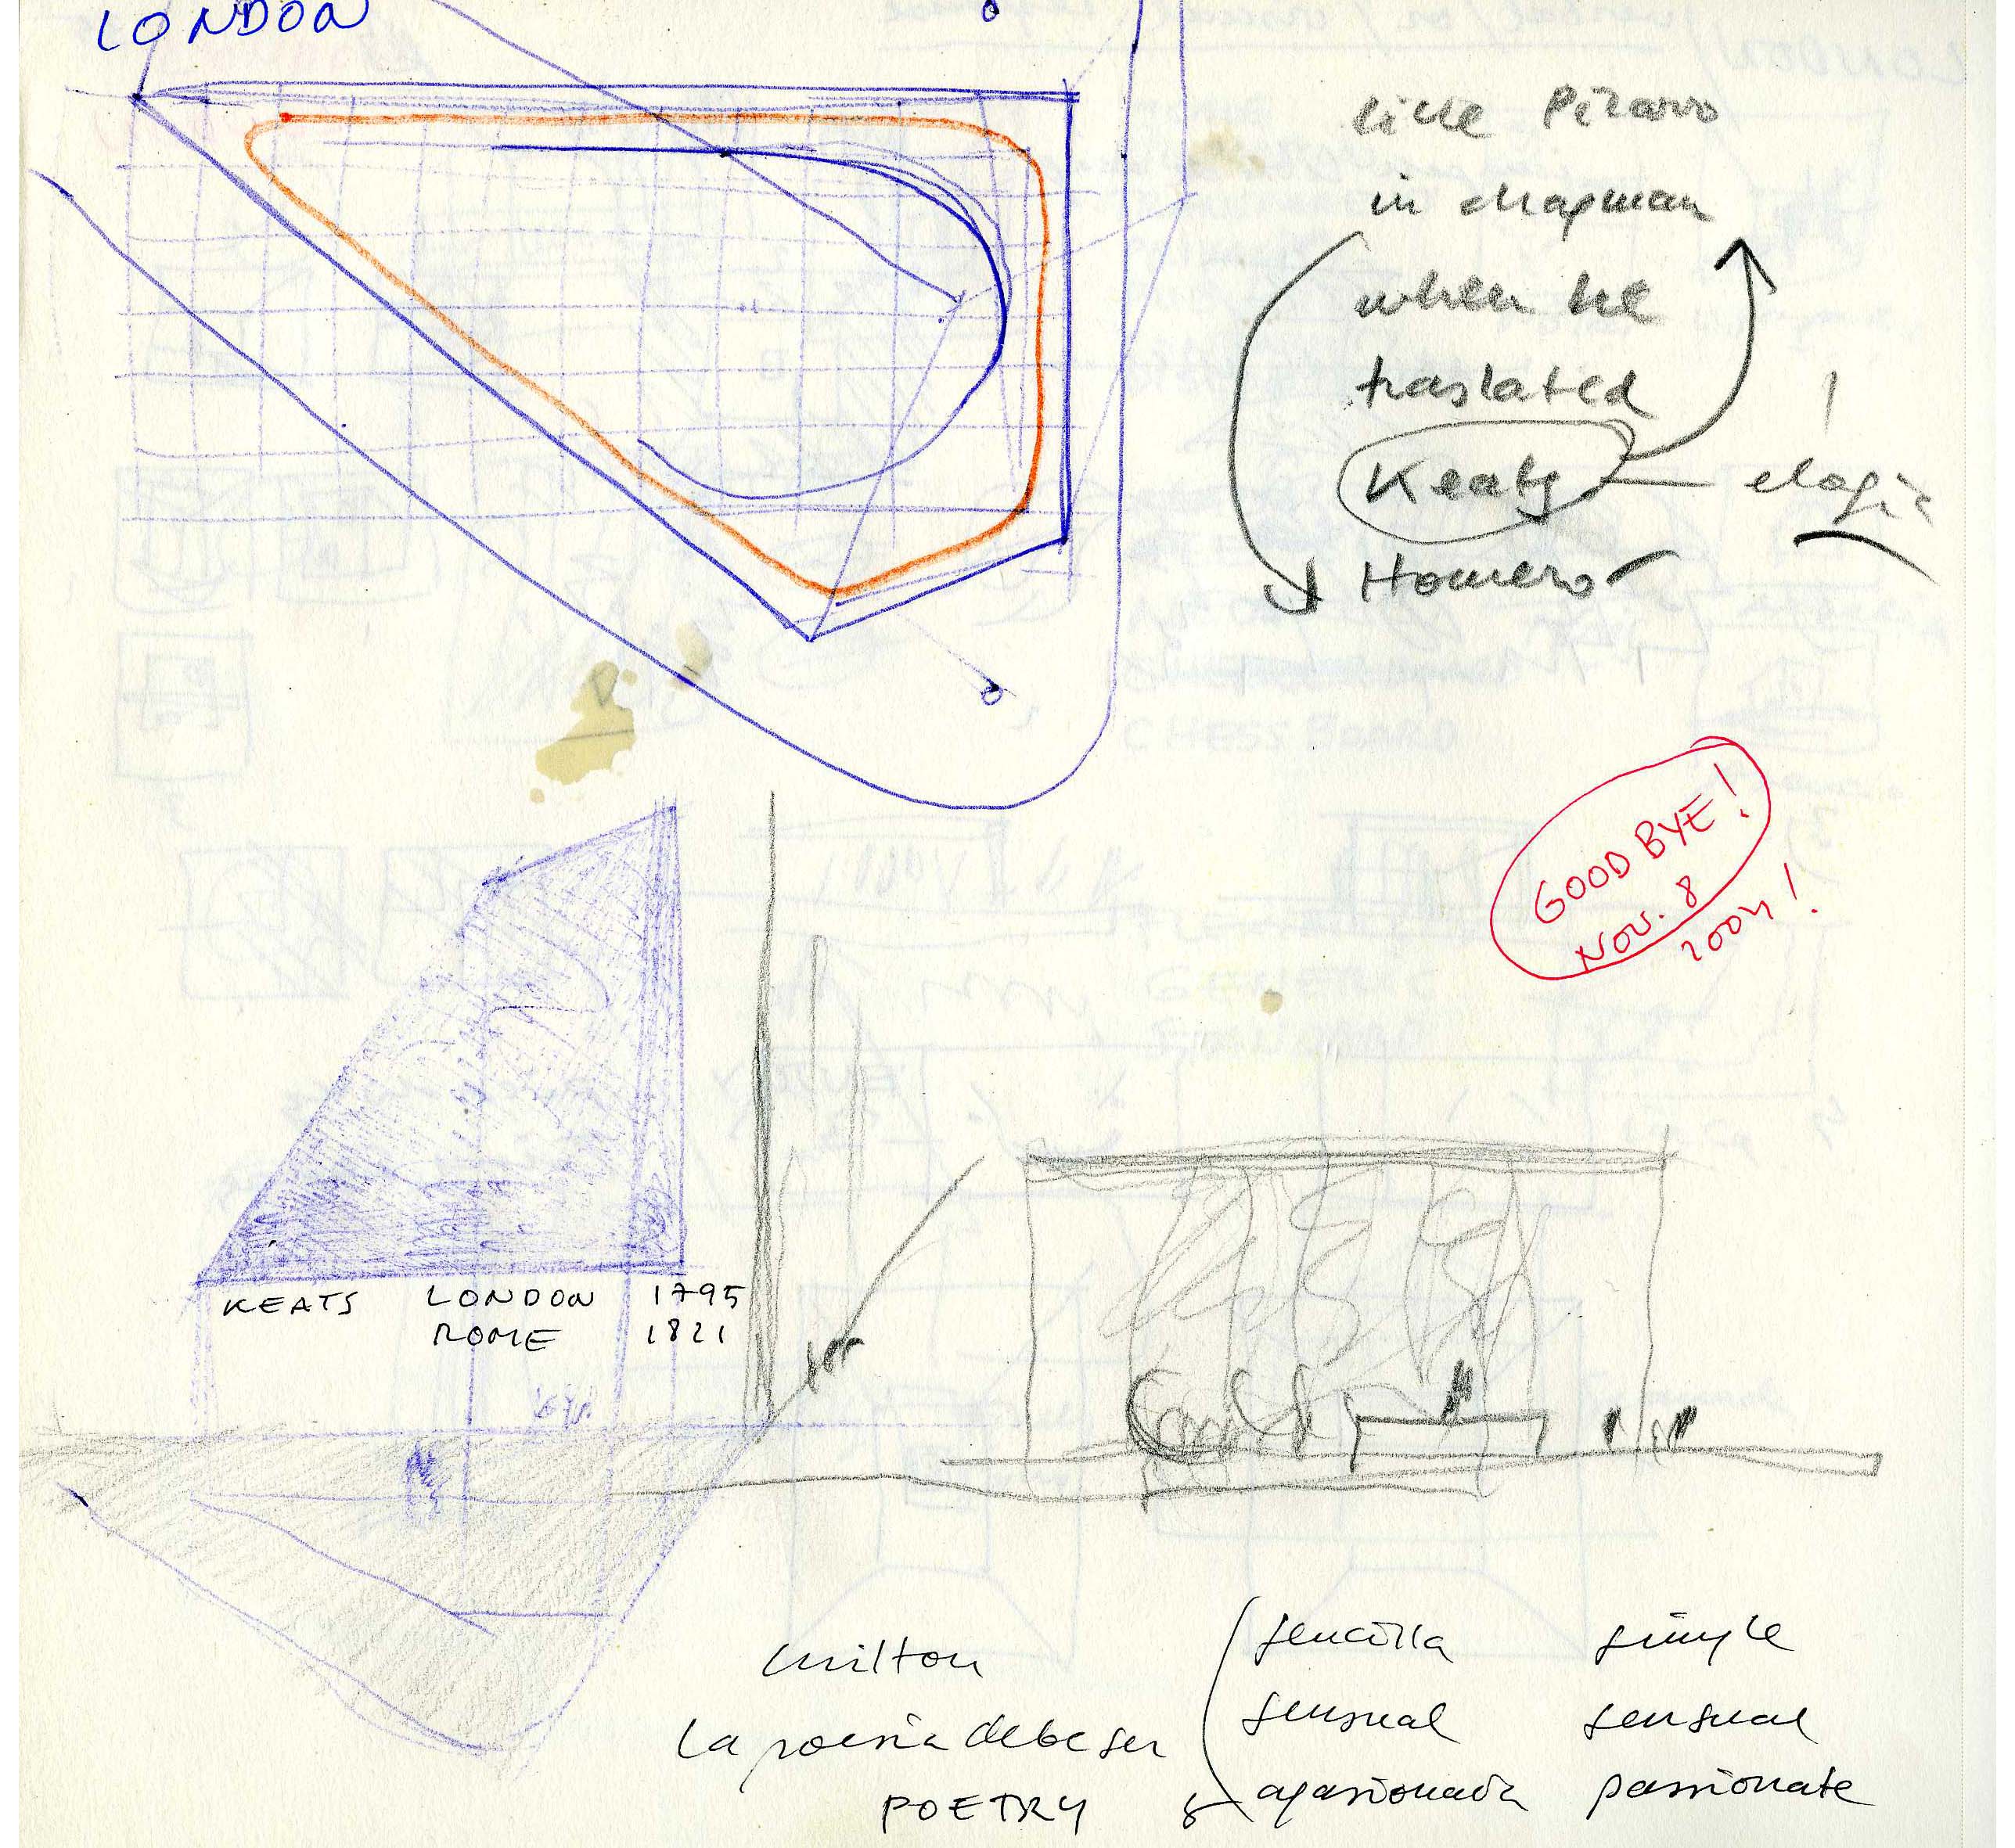 LONDON
like Pizarro
in chapman
when he
traslated
Keats
elogio
Homero
GOOD BYE!
NOV. 8
2004!
KEATS LONDON 1795
ROME 1821
milton
la poesia debe ser
POETRY
sencilla simple
sensual sensual
apasionada passionate